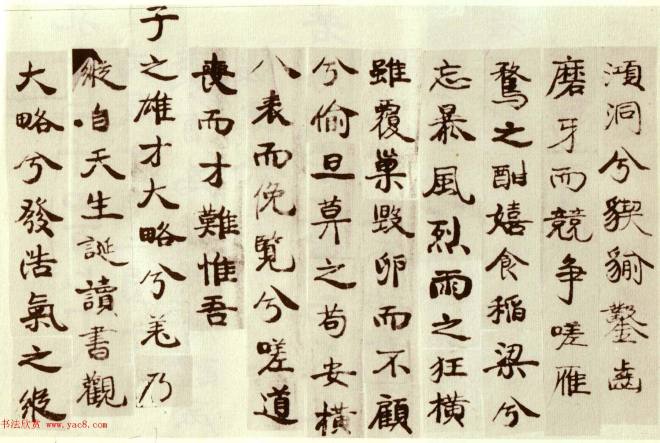 澒洞兮䝟貐鑿齒
磨牙而競争嗟雁
鶩之酣嬉食稻梁兮
忘暴風烈雨之狂横
雖覆巢毁卵而不顧
兮偷旦莫之苟安横
八表而俛覽兮嗟道
喪而才難惟吾
子之雄才大略兮羌乃
縱自天生誕讀書觀
大略兮發浩氣之縱
书法欣赏 www.yac8.com